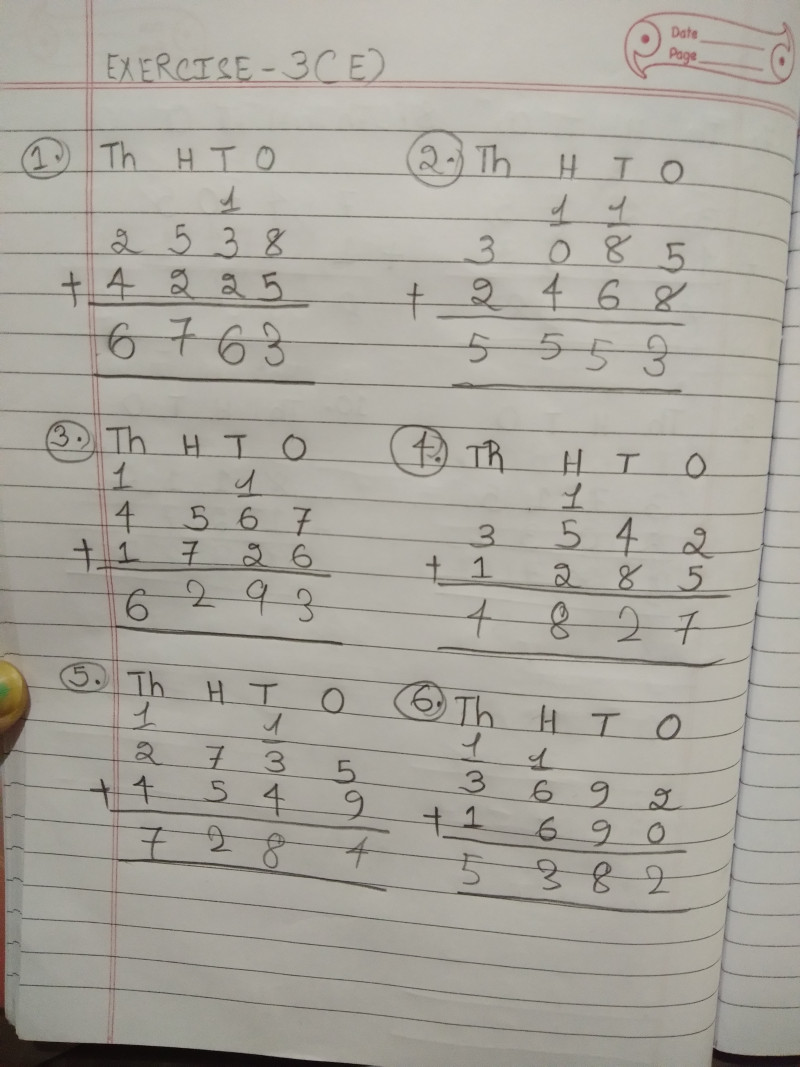 Date
Page
EXERCISE - 3(E)
1. Th H T O
1
2 5 3 8
+ 4 2 2 5
6 7 6 3
2. Th H T O
1 1
3 0 8 5
+ 2 4 6 8
5 5 5 3
3. Th H T O
1 1
4 5 6 7
+ 1 7 2 6
6 2 9 3
4. Th H T O
1
3 5 4 2
+ 1 2 8 5
4 8 2 7
5. Th H T O
1 1
2 7 3 5
+ 4 5 4 9
7 2 8 4
6. Th H T O
1 1
3 6 9 2
+ 1 6 9 0
5 3 8 2